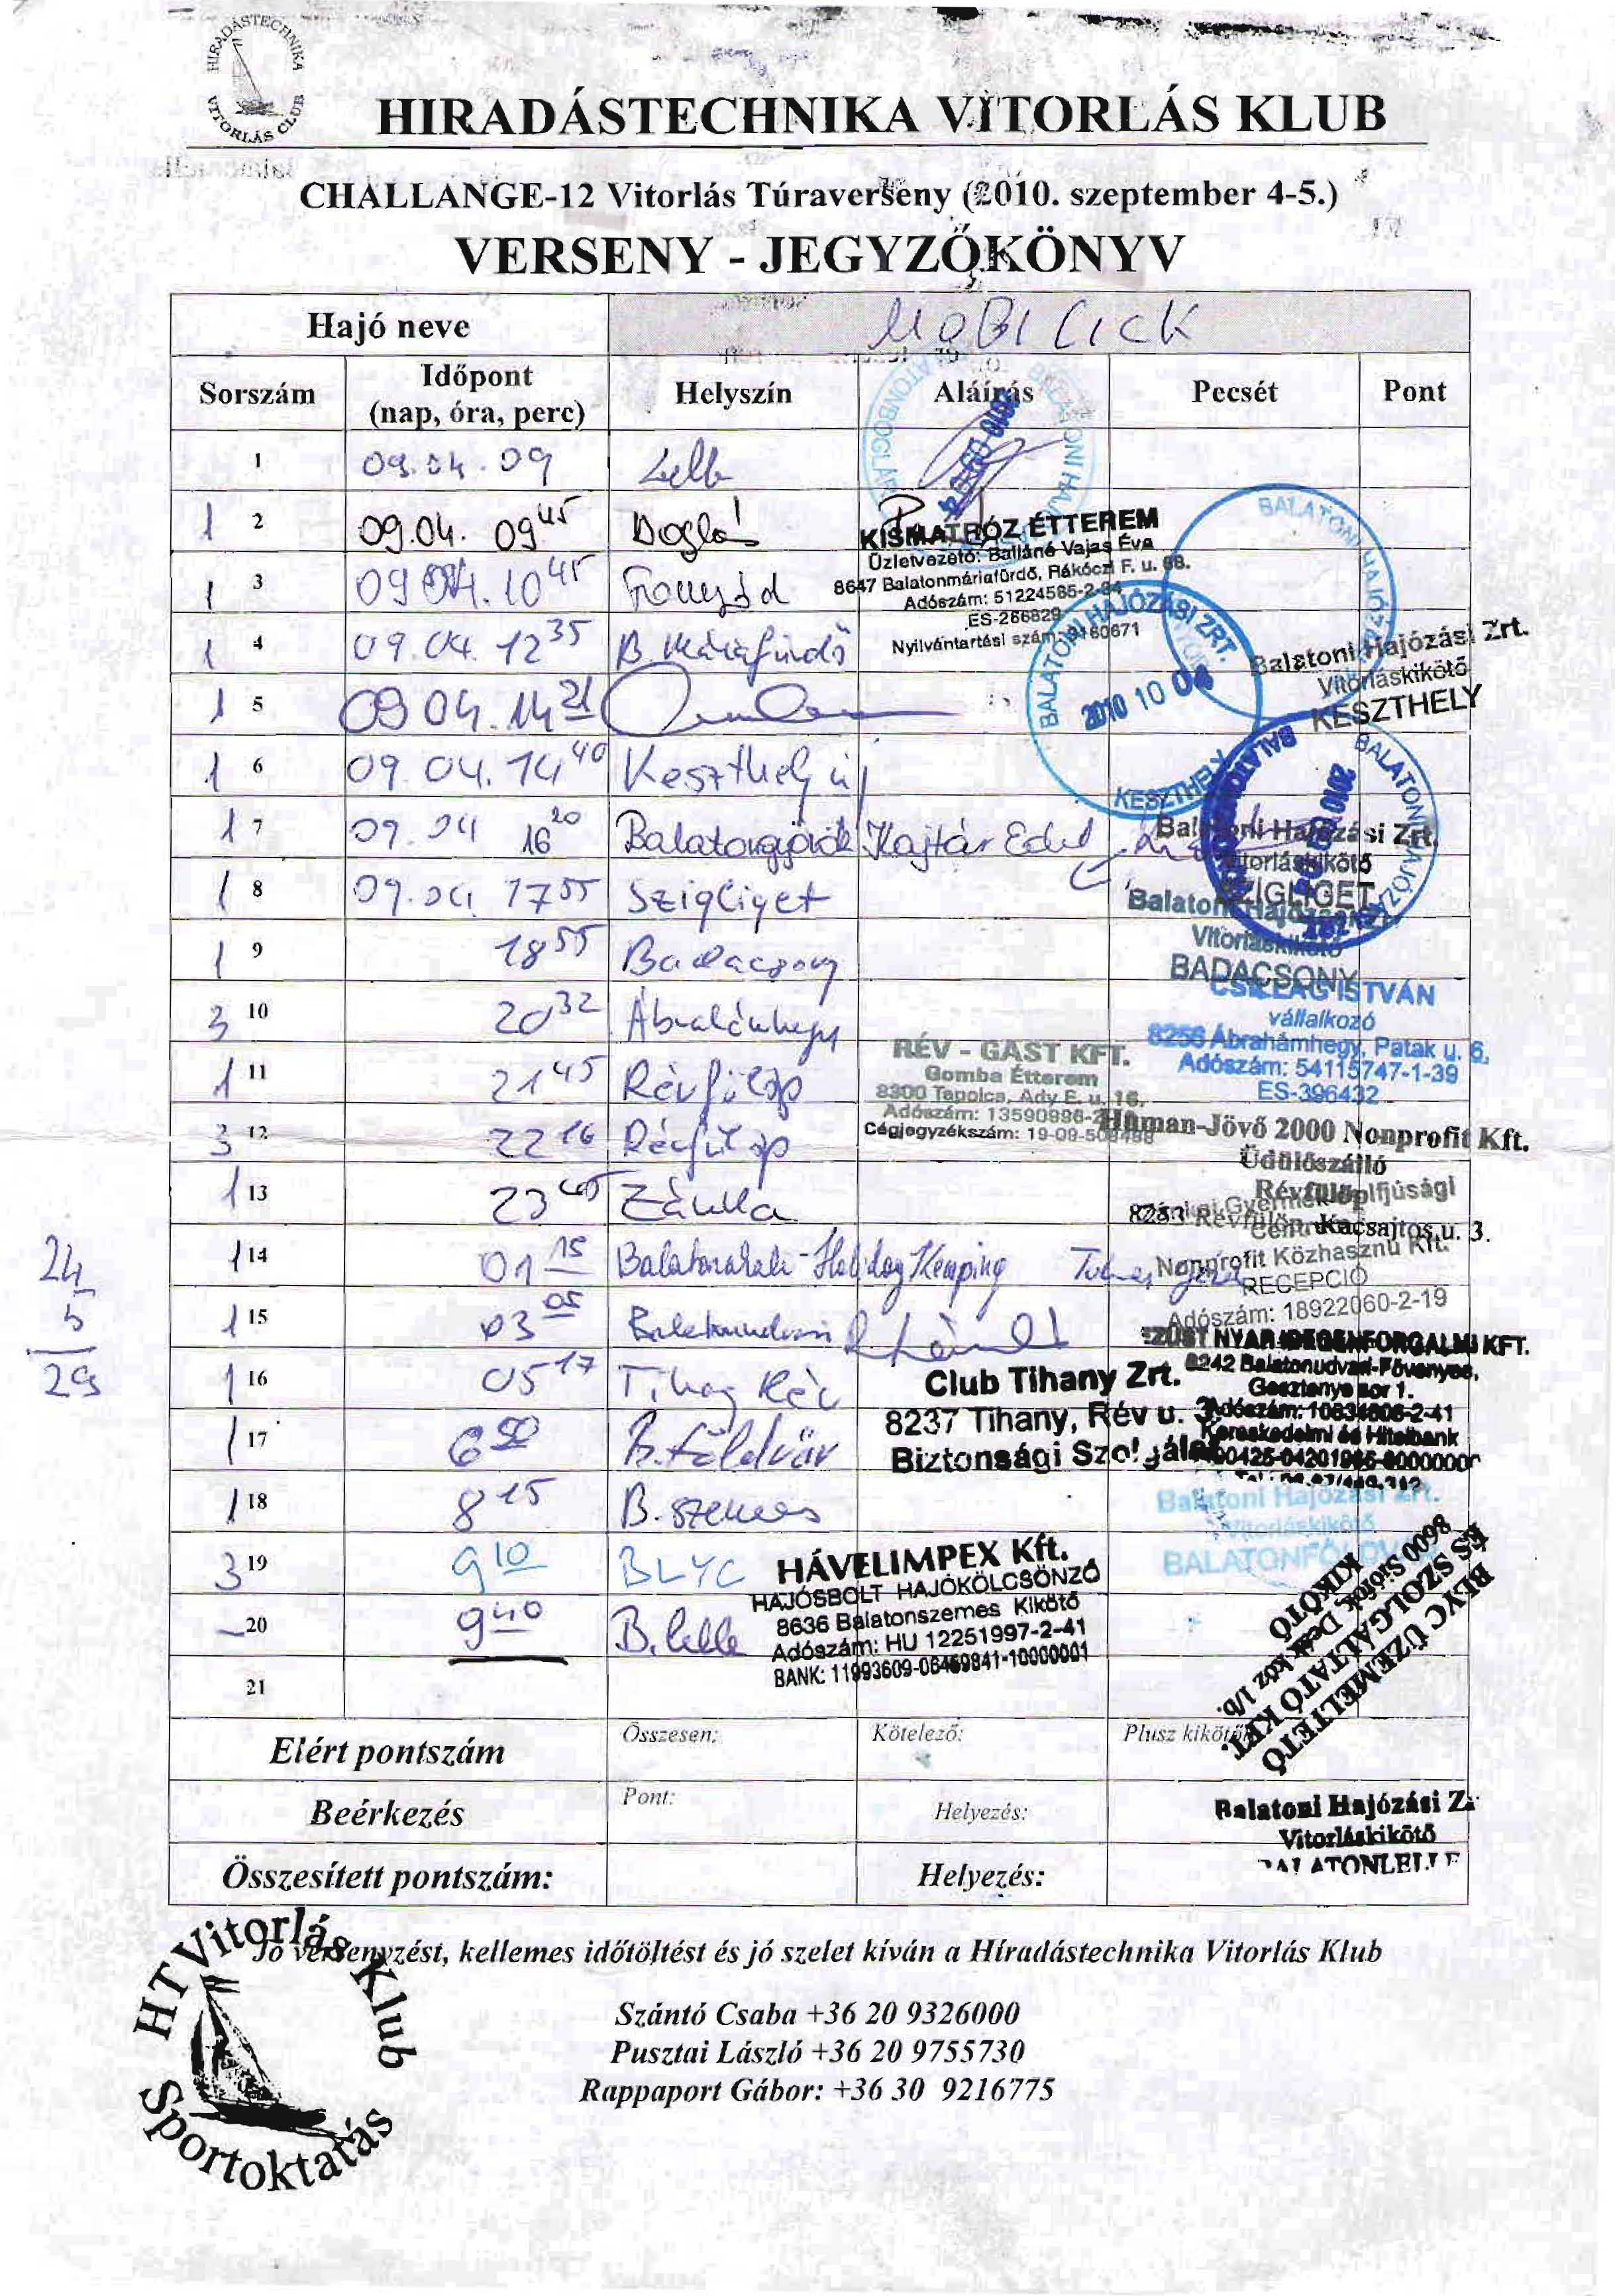 HIRADÁSTECHNIKA
VITORLÁS CLUB
HIRADÁSTECHNIKA VITORLÁS KLUB
CHALLANGE-12 Vitorlás Túraverseny (2010. szeptember 4-5.)
VERSENY - JEGYZŐKÖNYV
Hajó neve MOBI CICK
Sorszám Időpont (nap, óra, perc) Helyszín Aláírás Pecsét Pont
1 09.04. 09 Lelle
1 2 09.04. 09 45 Boglár
1 3 09 04. 10 45 Fonyód
1 4 09.04. 12 35 B. Máriafürdő
1 5 09 04. 14 21
1 6 09.04. 14 40 Keszthely új
1 7 09.04 16 20 Balatongyörök Kajtár Edit
1 8 09.04. 17 55 Szigliget
1 9 18 55 Badacsony
3 10 20 32 Ábrahámhegy
1 11 21 45 Révfülöp
3 12 22 16 Révfülöp
1 13 23 45 Zánka
1 14 01 15 Balatonakali - Holiday Kemping
1 15 03 05 Balatonudvari
1 16 05 17 Tihany Rév
1 17 6 50 B. földvár
1 18 8 15 B. szemes
3 19 9 10 BLYC
20 9 40 B. lelle
21
24
5
29
KISMATRÓZ ÉTTEREM
Üzletvezető: Balláné Vajas Éva
8647 Balatonmáriafürdő, Rákóczi F. u. 68.
Adószám: 51224585-2-34
ES-266829
Nyilvántartási szám: 3160671
BALATONI HAJÓZÁSI ZRT.
2010 10 04
KESZTHELY
Balatoni Hajózási Zrt.
Vitorláskikötő
KESZTHELY
Balatoni Hajózási Zrt.
Vitorláskikötő
SZIGLIGET
Balatoni Hajózási Zrt.
Vitorláskikötő
BADACSONY
CSILLAG ISTVÁN
vállalkozó
8256 Ábrahámhegy, Patak u. 6.
Adószám: 54115747-1-39
ES-396432
RÉV - GAST KFT.
Gomba Étterem
8300 Tapolca, Ady E. u. 16.
Adószám: 13590996-2
Cégjegyzékszám: 19-09-508498
Human-Jövő 2000 Nonprofit Kft.
Üdülőszálló
Kacsajtos u. 3.
Nonprofit Közhasznú Kft.
RECEPCIÓ
Adószám: 18922060-2-19
EZÜST NYÁR IDEGENFORGALMI KFT.
8242 Balatonudvari-Fövenyes,
Gesztenye sor 1.
Adószám: 10834606-2-41
Kereskedelmi és Hitelbank
Club Tihany Zrt.
8237 Tihany, Rév u. 3.
Biztonsági Szolgálat
Balatoni Hajózási Zrt.
Vitorláskikötő
BALATONFÖLDVÁR
HÁVELIMPEX Kft.
HAJÓSBOLT HAJÓKÖLCSÖNZŐ
8636 Balatonszemes Kikötő
Adószám: HU 12251997-2-41
BANK: 11993609-06469841-10000001
BLYC ÜZEMELTETŐ
ÉS SZOLGÁLTATÓ KFT.
8600 Siófok, Deák köz 1/b.
KIKÖTŐ
Elért pontszám Összesen: Kötelező: Plusz kikötők:
Beérkezés Pont: Helyezés:
Összesített pontszám: Helyezés:
Balatoni Hajózási Zrt.
Vitorláskikötő
BALATONLELLE
Jó versenyzést, kellemes időtöltést és jó szelet kíván a Híradástechnika Vitorlás Klub
Szántó Csaba +36 20 9326000
Pusztai László +36 20 9755730
Rappaport Gábor: +36 30 9216775
HT Vitorlás Klub
Sportoktatás